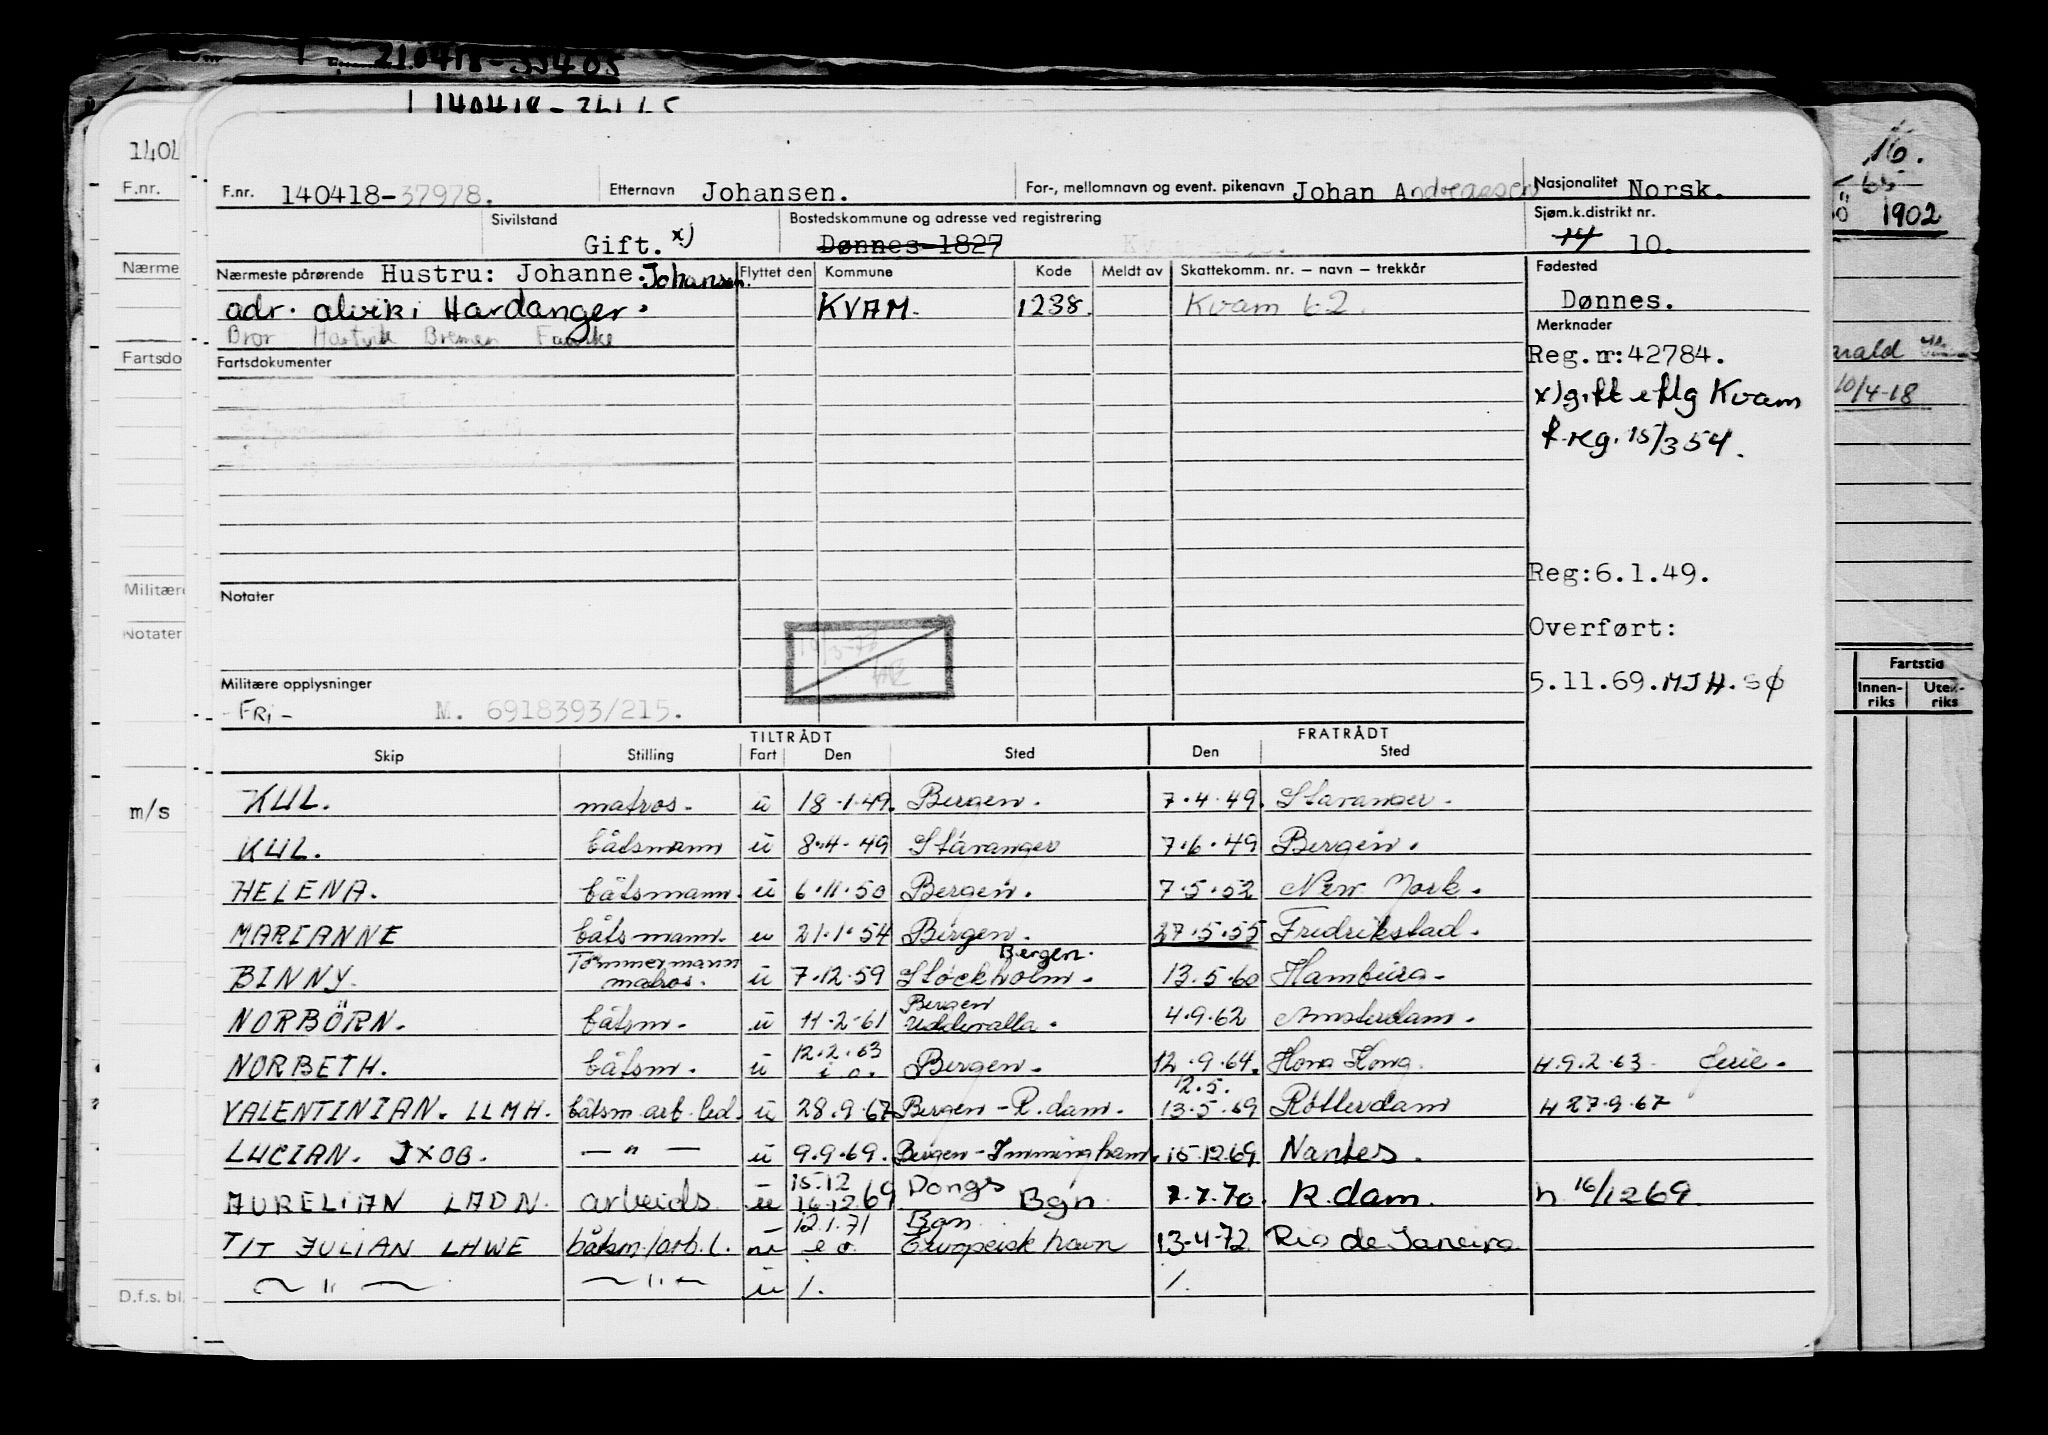 210418-33405
140418-
F.nr. 140418-37978. Etternavn Johansen. For-, mellomnavn og event. pikenavn Johan Andreassen Nasjonalitet Norsk.
Sivilstand Gift. x) Bostedskommune og adresse ved registrering Dønnes-1827 Sjøm.k.distrikt nr. 14 10.
Nærmeste pårørende Hustru: Johanne Johansen. Flyttet den Kommune Kode Meldt av Skattekomm. nr. – navn – trekkår Fødested
adr. alviki Hardanger. KVAM. 1238. Kvam 62. Dønnes.
Bror Hartvik Bremer
Merknader
Fartsdokumenter Reg.nr:42784.
x) gift iflg Kvam
f.reg. 15/3 54.
Reg:6.1.49.
Notater
Overført:
Militære opplysninger 5.11.69. MJH. SØ
- FRI - M. 6918393/215.
TILTRÅDT FRATRÅDT
Skip Stilling Fart Den Sted Den Sted
KUL. matros. u 18.1.49. Bergen. 7.4.49. Stavanger.
KUL. båtsmann u 8.4.49 Stavanger 7.6.49 Bergen.
HELENA. båtsmann. u 6.11.50 Bergen. 7.5.52 New York.
MARIANNE båtsmann. u 21.1.54 Bergen. 27.5.55 Fredrikstad.
BINNY. Tømmermann matros. u 7.12.59 Bergen. Stockholm. 13.5.60 Hamburg.
NORBÖRN. båtsm. u 11.2.61 Bergen Uddevalla. 4.9.62 Amsterdam.
NORBETH. båtsm. u 12.2.63 i o. Bergen. 12.9.64. Hong Kong. H.9.2.63 ferie.
VALENTINIAN. LLMH. båtsm. arb. led. u 28.9.67 Bergen - R.dam. 12.5. 13.5.69 Rotterdam H 27.9.67
LUCIAN. JXOB. — " — u 9.9.69. Bergen - Immingham. 15.12.69 Nantes.
AURELIAN LADN. arbeids u 15.12 16.12.69 Donges Bgn 7.7.70. R.dam. h 16/12 69.
TIT JULIAN LHWE båtsm/arb.l. u 12.1.71 e o. Bgn Europeisk havn 13.4.72 Rio de Janeiro
— " — — " — u /. /.
140
F.nr.
Nærme
Fartsdo
Militære
Notater
m/s
D.f.s. bl.
16.
1902
arald
10/4-18
Fartstid
Innen-riks Uten-riks